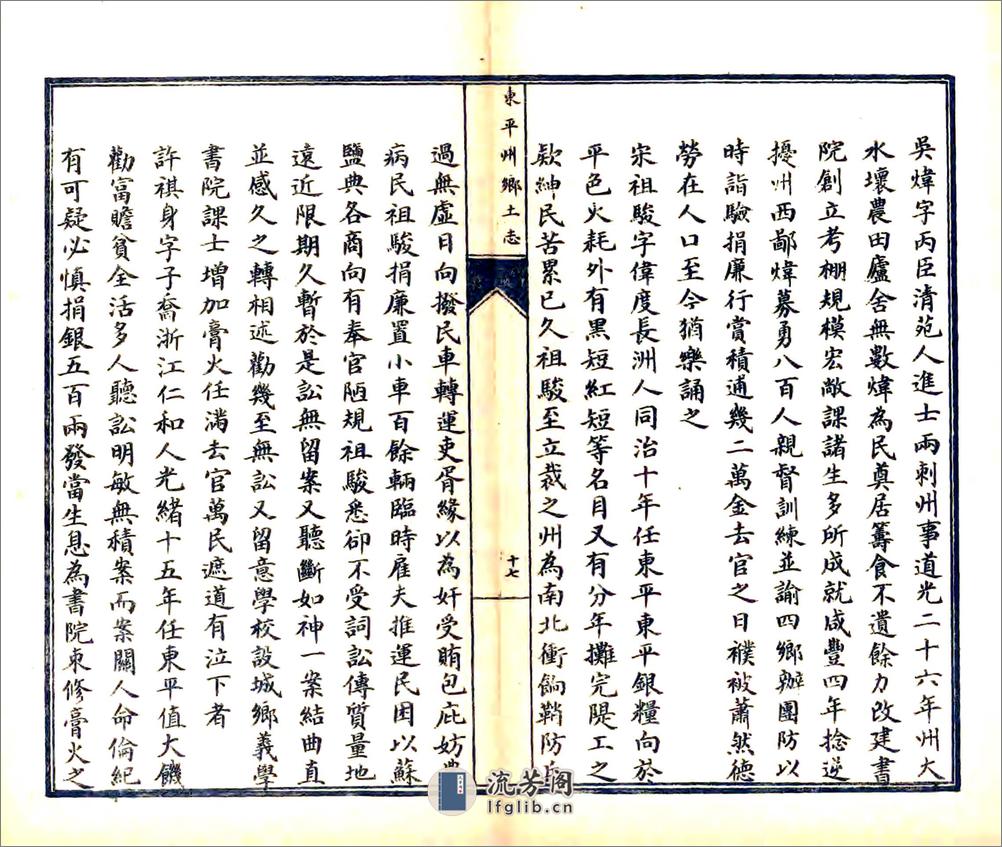 吳煒字丙臣清苑人進士兩刺州事道光二十六年州大
水壞農田廬舍無數煒為民奠居籌食不遺餘力改建書
院創立考棚規模宏敞課諸生多所成就咸豐四年捻逆
擾州西鄙煒募勇八百人親督訓練並諭四鄉辦團防以
時詣驗捐廉行賞積逋幾二萬金去官之日襆被蕭然德
勞在人口至今猶樂誦之
宋祖駿字偉度長洲人同治十年任東平東平銀糧向於
平色火耗外有黑短紅短等名目又有分年攤完隄工之
欵紳民苦累已久祖駿至立裁之州為南北衝餉鞘防兵
東平州鄉土志
十七
過無虛日向撥民車轉運吏胥緣以為奸受賄包庇妨農
病民祖駿捐廉置小車百餘輛臨時雇夫推運民困以蘇
鹽典各商向有奉官陋規祖駿悉卻不受詞訟傳質量地
遠近限期久暫於是訟無留案又聽斷如神一案結曲直
並感久之轉相述勸幾至無訟又留意學校設城鄉義學
書院課士增加膏火任滿去官萬民遮道有泣下者
許祺身字子喬浙江仁和人光緒十五年任東平值大饑
勸富贍貧全活多人聽訟明敏無積案而案關人命倫紀
有可疑必慎捐銀五百兩發當生息為書院束修膏火之
流芳阁
lfglib.cn